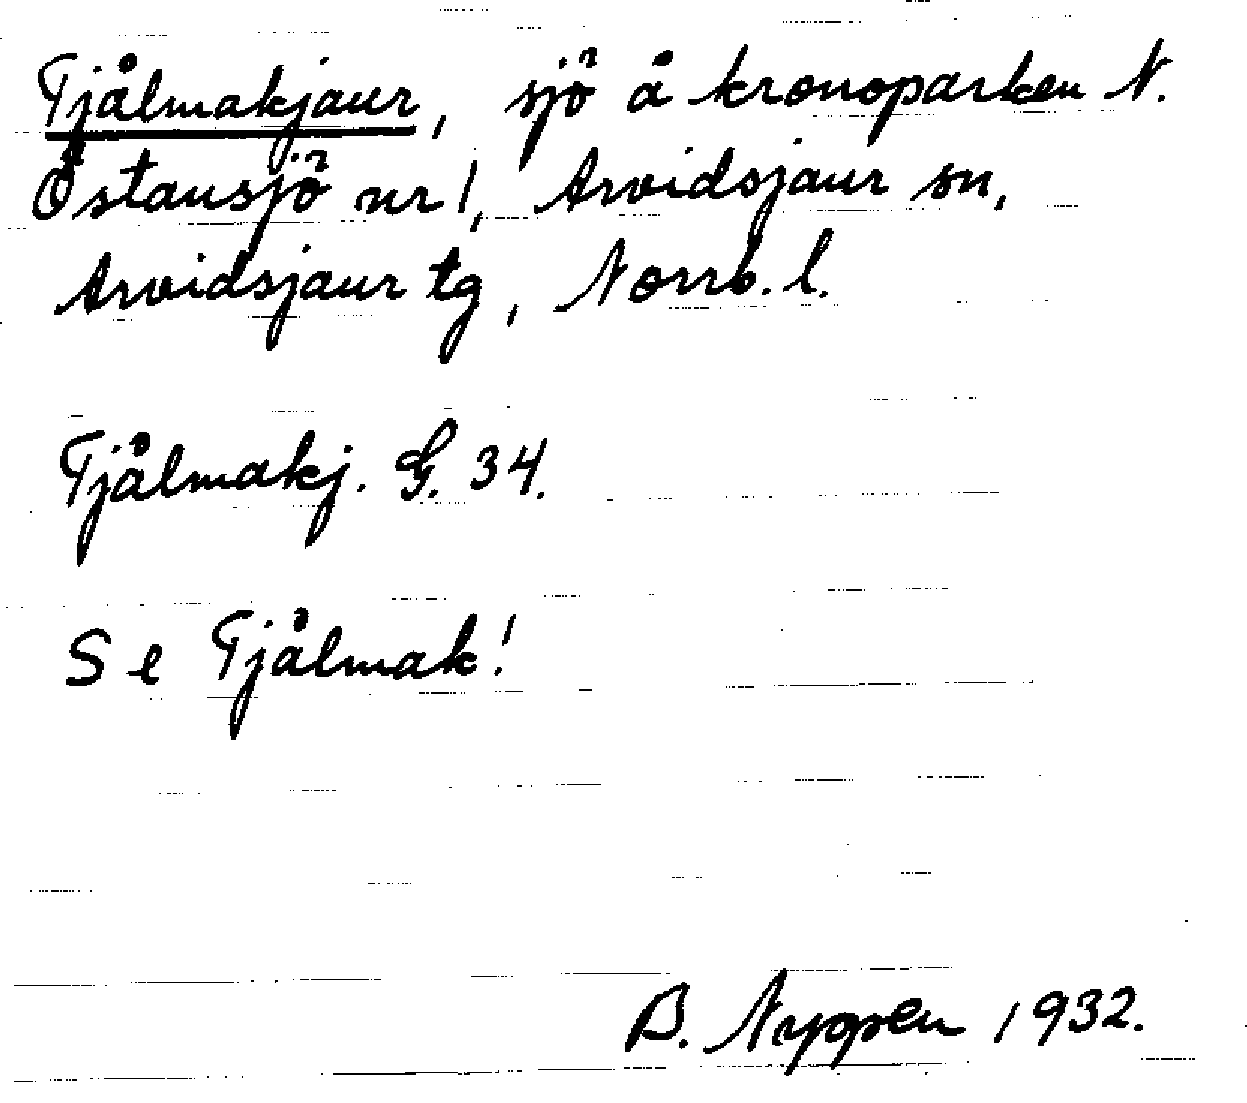 Tjålmakjaur, sjö å kronoparken N.
Östansjö nr 1, Arvidsjaur sn,
Arvidsjaur tg, Norrb. l.
Tjålmakj. G. 34.
Se Tjålmak!
B. Nygren 1932.